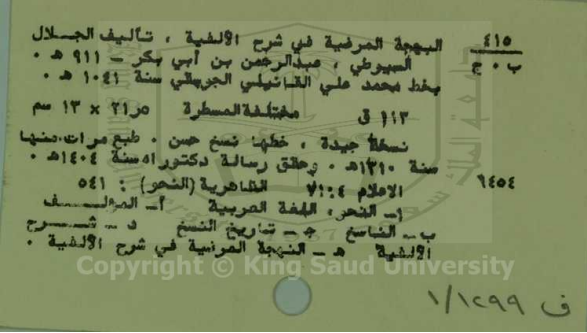 ٤١٥
ب ٠ ج
البهجة المرضية في شرح الألفية ، تأليف الجلال
السيوطي ، عبدالرحمن بن أبي بكر – ٩١١ هـ ٠
بخط محمد علي سنة ١٠٤١ هـ ٠
١١٣ ق مختلفة المسطرة ٢١٫٥ × ١٣ سم
نسخة جيدة ، خطها نسخ حسن ٠ طبع مرات منها
سنة ١٣١٠هـ ٠ وحقق رسالة دكتوراه سنة ١٤٠٤هـ ٠
٦٤٥٤
الاعلام ٤:٧١ الظاهرية (النحو) : ٥٤١
١– النحو، اللغة العربية أ– المؤلف
ب– الناسخ جـ – تاريخ النسخ د – شرح
الألفية هـ – النهجة المرضية في شرح الألفية ٠
Copyright © King Saud University
ف ١/١٢٩٩